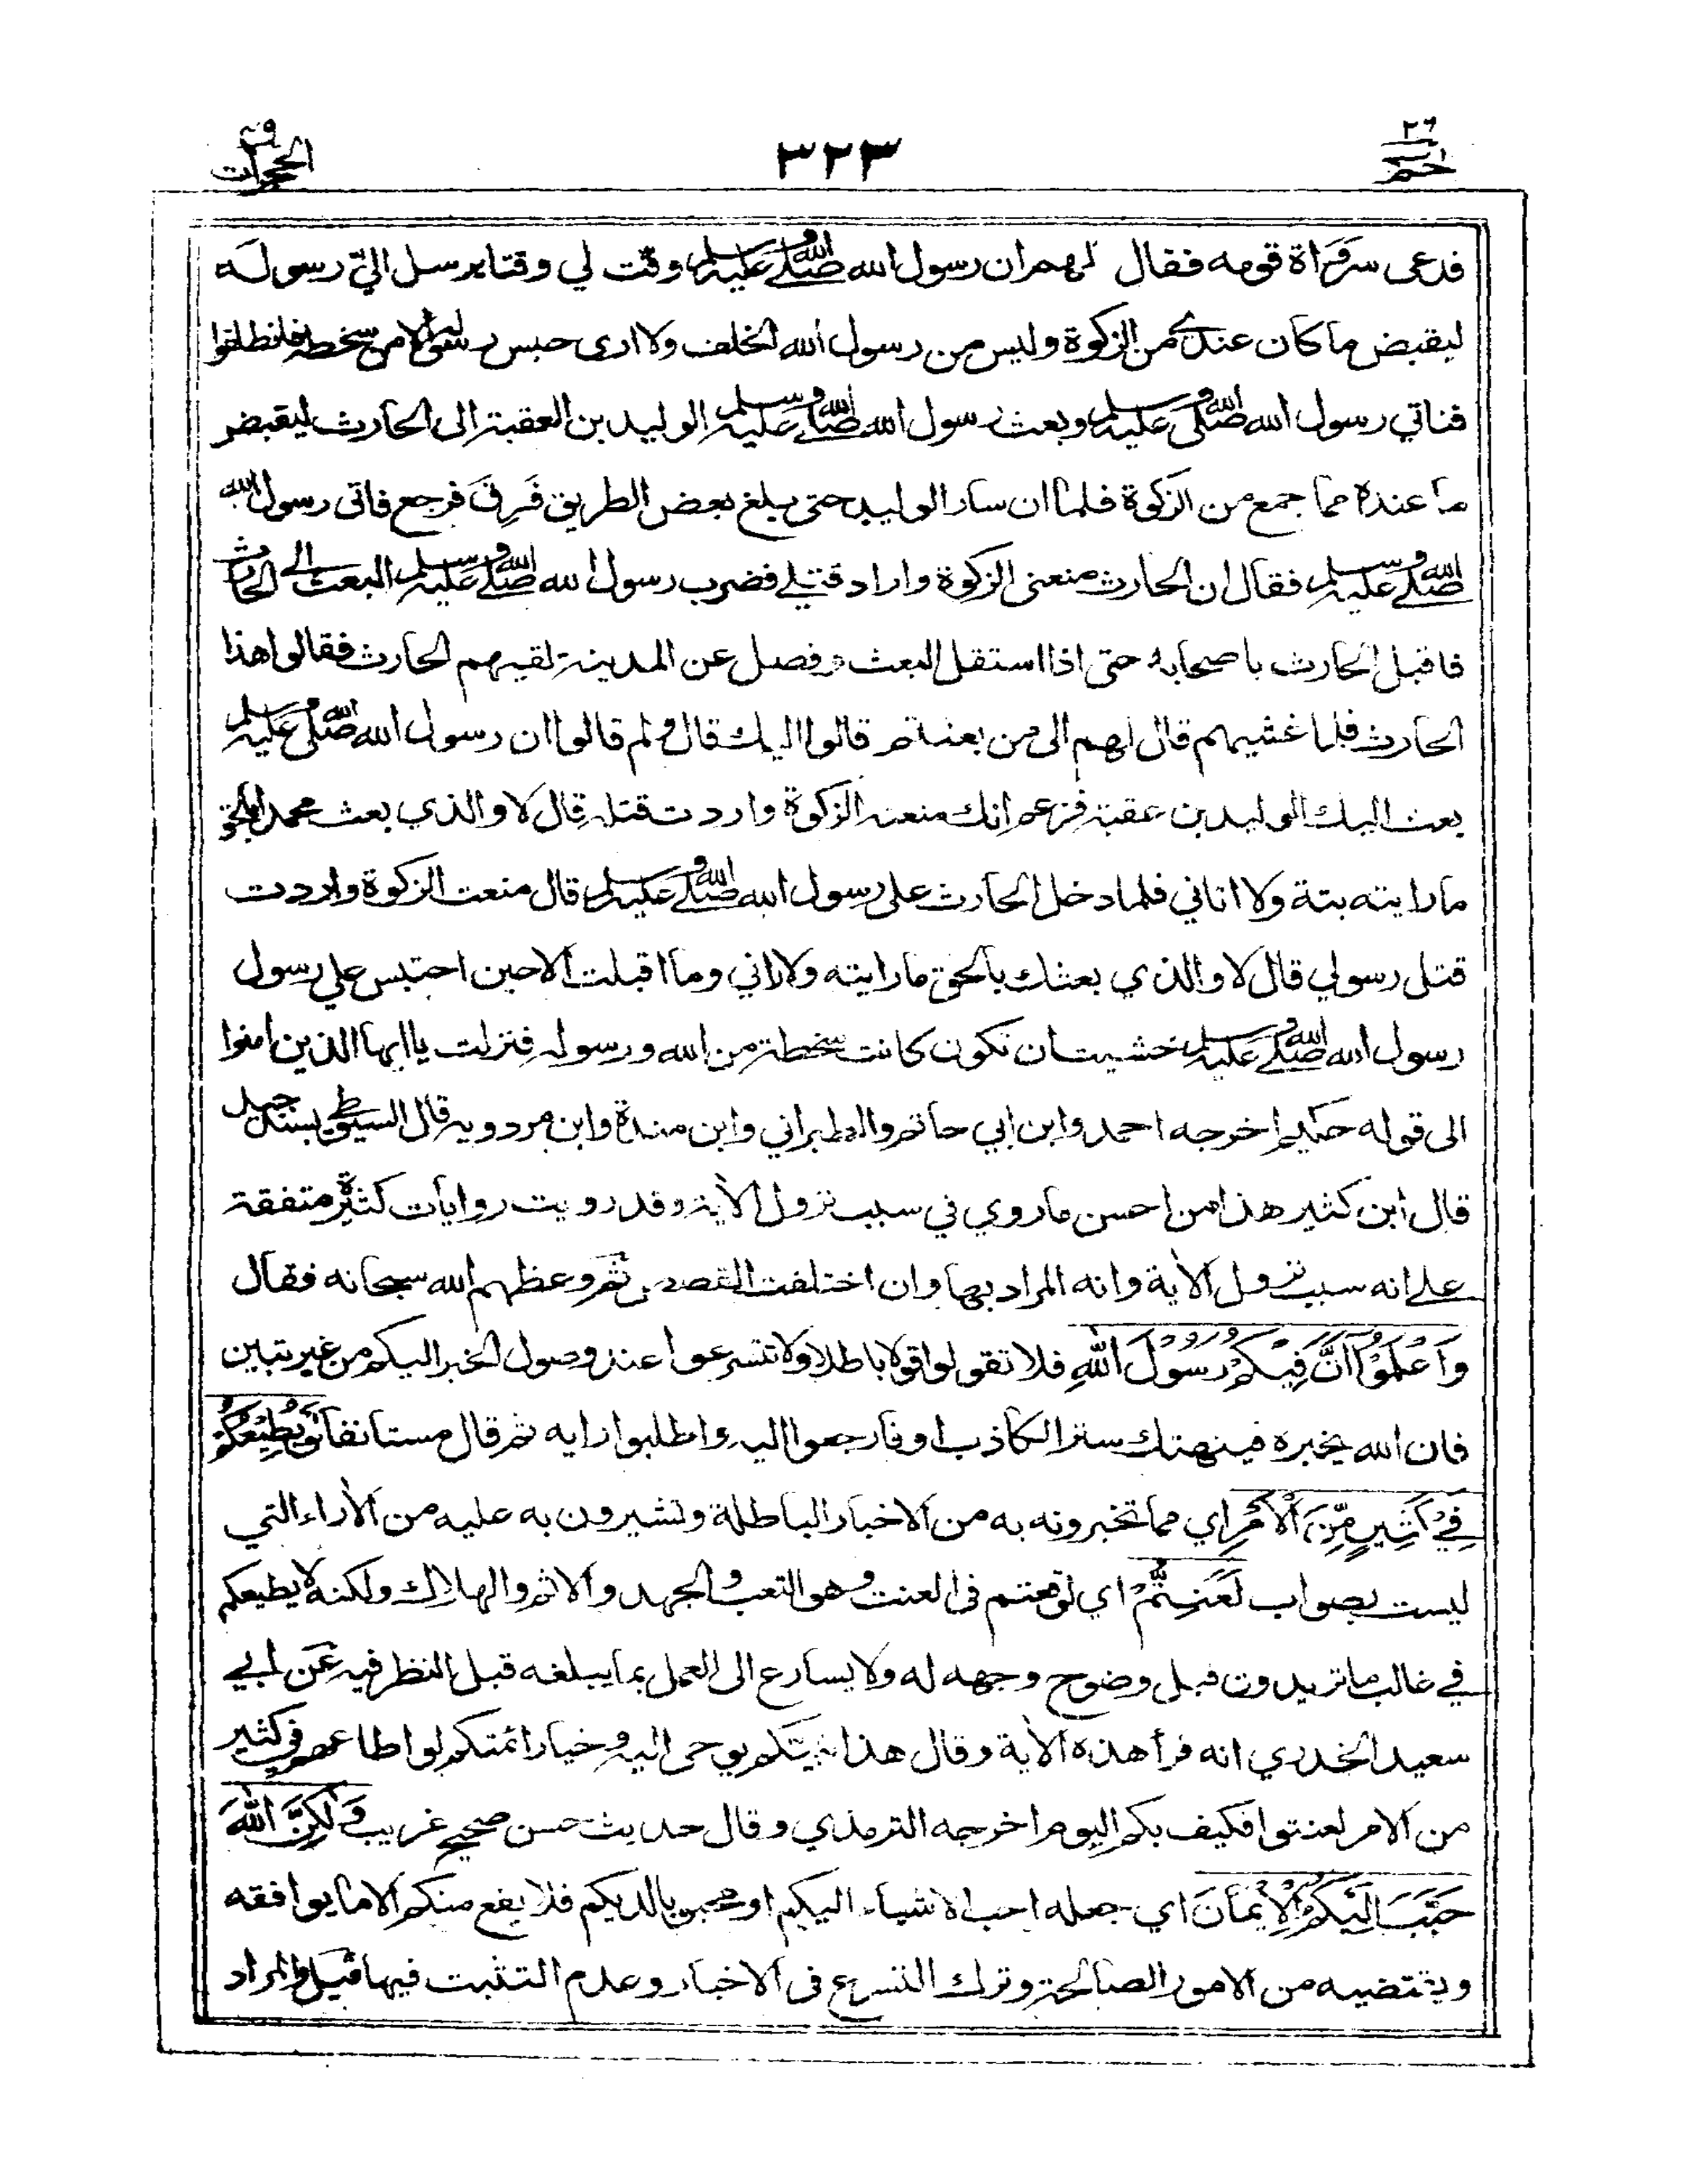 ٢٦ حم ٣٢٣ الحجرات ٤٩
فدعى سروَاة قومه فقال لهم ان رسول الله صلى الله عليه وسلم وقّت لي وقتا يرسل اليّ رسوله
ليقبض ما كان عندكم من الزكوة وليس من رسول الله الخلف ولا ارى حبس رسوله الا من سخطه فانطلقوا
فناتي رسول الله صلى الله عليه وسلم وبعث رسول الله صلى الله عليه وسلم الوليد بن العقبة الى الحارث ليقبض
ما عنده مما جمع من الزكوة فلما ان سار الوليد حتى بلغ بعض الطريق فَرِقَ فرجع فاتى رسول الله
صلى الله عليه وسلم فقال ان الحارث منعنى الزكوة واراد قتلي فضرب رسول الله صلى الله عليه وسلم البعث الى الحارث
فاقبل الحارث باصحابه حتى اذا استقل البعث وفصل عن المدينة لقيهم الحارث فقالوا هذا
الحارث فلما غشيهم قال لهم الى من بعثتم قالوا اليك قال ولم قالوا ان رسول الله صلى الله عليه وسلم
بعث اليك الوليد بن عقبة فزعم انك منعته الزكوة واردت قتله قال لا والذي بعث محمدا بالحق
ما رايته بتة ولا اتاني فلما دخل الحارث على رسول الله صلى الله عليه وسلم قال منعت الزكوة واردت
قتل رسولي قال لا والذي بعثك بالحق ما رايته ولا راني وما اقبلت الا حين احتبس علي رسول
رسول الله صلى الله عليه وسلم خشيت ان تكون كانت سخطة من الله ورسوله فنزلت يا ايها الذين امنوا
الى قوله حكيم اخرجه احمد وابن ابي حاتم والطبراني وابن مندة وابن مردويه قال السيوطي بسند جيد
قال ابن كثير هذا من احسن ما روي في سبب نزول الأية وقد رويت روايات كثيرة متفقة
على انه سبب نزول الأية وانه المراد بها وان اختلفت القصص ثم وعظهم الله سبحانه فقال
وَاعْلَمُوْآ اَنَّ فِيْكُمْ رَسُوْلَ اللهِ فلا تقولوا قولا باطلا ولا تتسرعوا عند وصول الخبر اليكم من غير تبين
فان الله يخبره فينهتك ستر الكاذب او فارجعوا اليه واطلبوا رايه ثم قال مستانفا لَوْ يُطِيْعُكُمْ
فِيْ كَثِيْرٍ مِّنَ الْاَمْرِ اي مما تخبرونه به من الاخبار الباطلة وتشيرون به عليه من الأراء التي
ليست بصواب لَعَنِتُّمْ اي لوقعتم في العنت وهو التعب والجهد والاثم والهلاك ولكنه لا يطيعكم
في غالب ما تريدون قبل وضوح وجهه له ولا يسارع الى العمل بما يبلغه قبل النظر فيه عَن ابي
سعيد الخدري انه قرأ هذه الأية وقال هذا نبيّكم يوحى اليه وخيار ائمتكم لو اطاعهم في كثير
من الامر لعنتوا فكيف بكم اليوم اخرجه الترمذي وقال حديث حسن صحيح غريب وَلٰكِنَّ اللهَ
حَبَّبَ اِلَيْكُمُ الْاِيْمَانَ اي جعله احب الاشياء اليكم او محبوبا لديكم فلا يقع منكم الا ما يوافقه
ويقتضيه من الامور الصالحة وترك التسرع في الاخبار وعدم التثبت فيها قيل والمراد